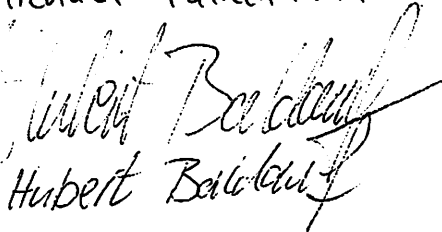 Hubert Baldauf
Hubert Baldauf